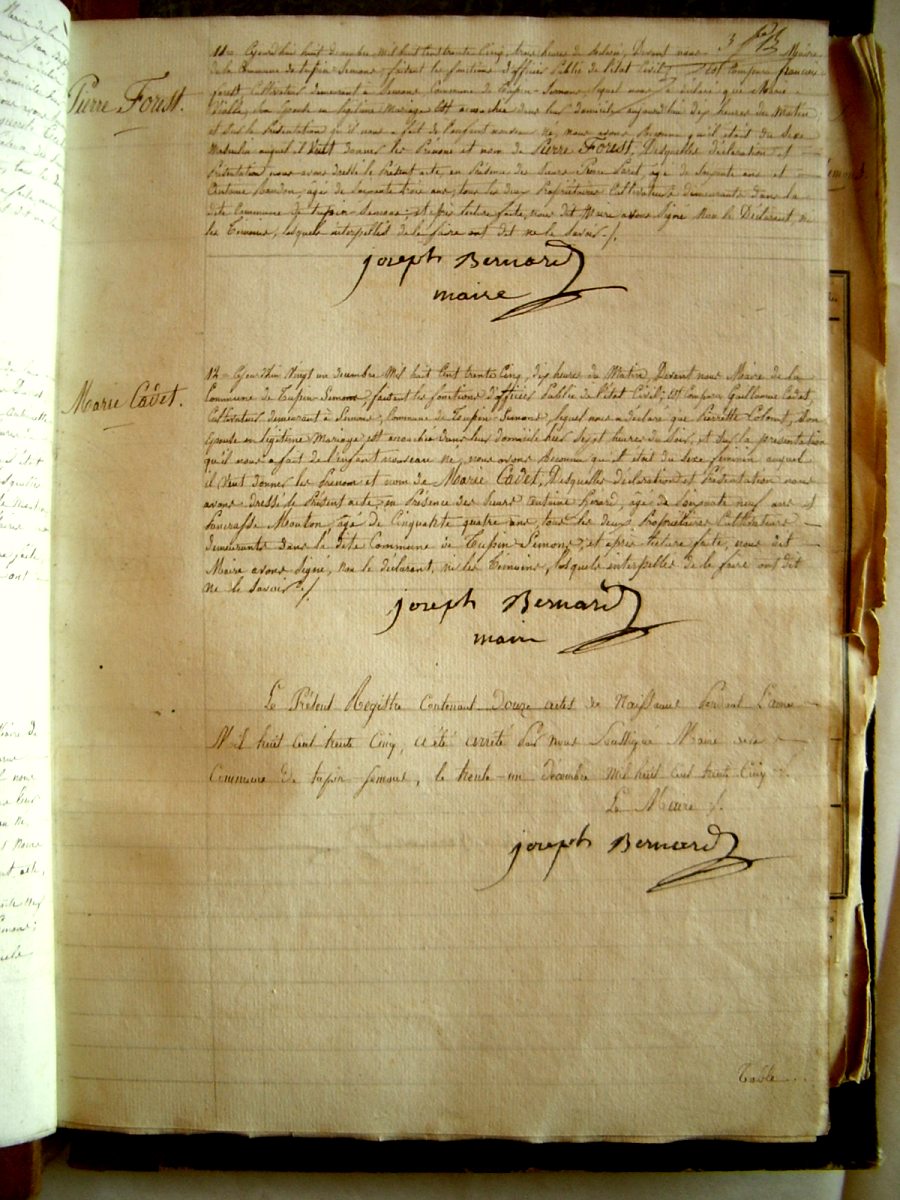 3
Pierre Forest.
11 = Cejourd'hui huit decembre mil huit cent trente cinq, heures de Devant nous Maire
de la Commune de tupin Semons, faisant les fonctions d'officier Public de l'état Civil, Est Comparu françois
forest Cultivateur demeurant à Semons, Commune de tupin-Semons, lequel nous a déclaré que Marie
Vialle, Son Epouse en légitime Mariage Est accouchée dans leur domicile aujourd'hui dix heures du Matin
et Sur la Présentation qu'il nous a fait de l'enfant nouveau né, nous avons Reconnu qu'il était du Sexe
Masculin auquel il Veut donner les Prénom et nom de Pierre Forest, Desquelles déclaration et
Présentation nous avons dressé le Présent acte, en Présence des Sieurs Pierre agé de Soixante ans et
Antoine agé de Soixante trois ans, tous les deux Propriétaires Cultivateurs demeurants dans la
dite Commune de tupin Semons; et après lecture faite, nous dit Maire avons Signé Non le Déclarant, ni
les Temoins, lesquels interpellés de le faire ont dit ne le Savoir ./.
joseph Bernard
maire
Marie Cadet.
12 = Cejourd'hui Vingt un decembre Mil huit Cent trente Cinq, dix heures du Matin, Devant nous Maire de la
Commune de Tupin Semons faisant les fonctions d'officier Public de l'état Civil; Est Comparu Guillaume Cadet
Cultivateur demeurant à Semons, Commune de Tupin-Semons, lequel nous a déclaré que Pierrette Son
Epouse en légitime Mariage est accouchée dans leur domicile hier Sept heures du Soir, et Sur la présentation
qu'il nous a fait de l'enfant nouveau né, nous avons Reconnu qu'il était du Sexe féminin auquel
il Veut donner les Prénom et nom de Marie Cadet, Desquelles déclaration et Présentation nous
avons dressé le Présent acte, en Présence des Sieurs Antoine agé de Soixante neuf ans et
Pancrasse Mouton, agé de Cinquante quatre ans, tous les deux Propriétaires Cultivateurs
demeurants dans la dite Commune de Tupin Semons, et après lecture faite, nous dit
Maire avons Signé, Non le déclarant, ni les Temoins, lesquels interpellés de le faire ont dit
ne le Savoir ./.
joseph Bernard
maire
Le Présent Registre Contenant Douze actes de Naissances Pendant L'année
Mil huit cent trente Cinq, a été arrété Par nous Soussigné Maire de la
Commune de tupin-semons, le trente-un Décembre mil huit cent trente Cinq ./.
Le Maire ./.
joseph Bernard
Table